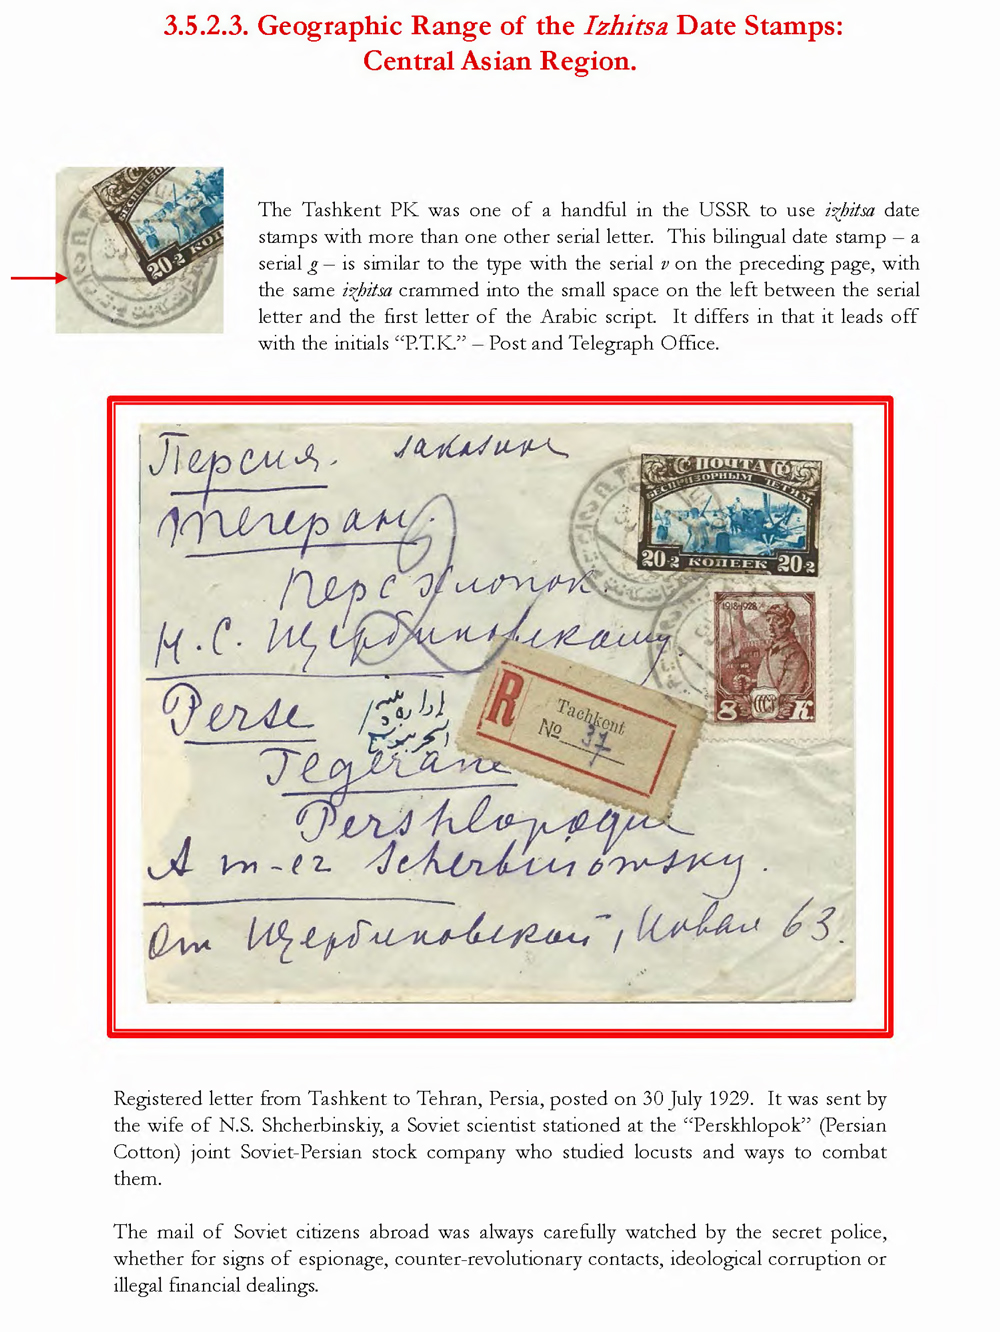 3.5.2.3. Geographic Range of the Izhitsa Date Stamps:
Central Asian Region.
The Tashkent PK was one of a handful in the USSR to use izhitsa date
stamps with more than one other serial letter. This bilingual date stamp – a
serial g – is similar to the type with the serial v on the preceding page, with
the same izhitsa crammed into the small space on the left between the serial
letter and the first letter of the Arabic script. It differs in that it leads off
with the initials “P.T.K.” – Post and Telegraph Office.
Персия. заказное
Тегеран.
Персхлопок.
Н.С. Щербиновскому
Perse
اداره
Tegerane
Pershlopoque
A m-er Scherbinowsky.
От Щербиновской, Новая 63.
ПОЧТА
БЕСПРИЗОРНЫМ ДЕТЯМ
20+2 КОПЕЕК 20+2
1918-1928
СССР
8 К
R
Tachkent
№ 37
Registered letter from Tashkent to Tehran, Persia, posted on 30 July 1929. It was sent by
the wife of N.S. Shcherbinskiy, a Soviet scientist stationed at the “Perskhlopok” (Persian
Cotton) joint Soviet-Persian stock company who studied locusts and ways to combat
them.
The mail of Soviet citizens abroad was always carefully watched by the secret police,
whether for signs of espionage, counter-revolutionary contacts, ideological corruption or
illegal financial dealings.